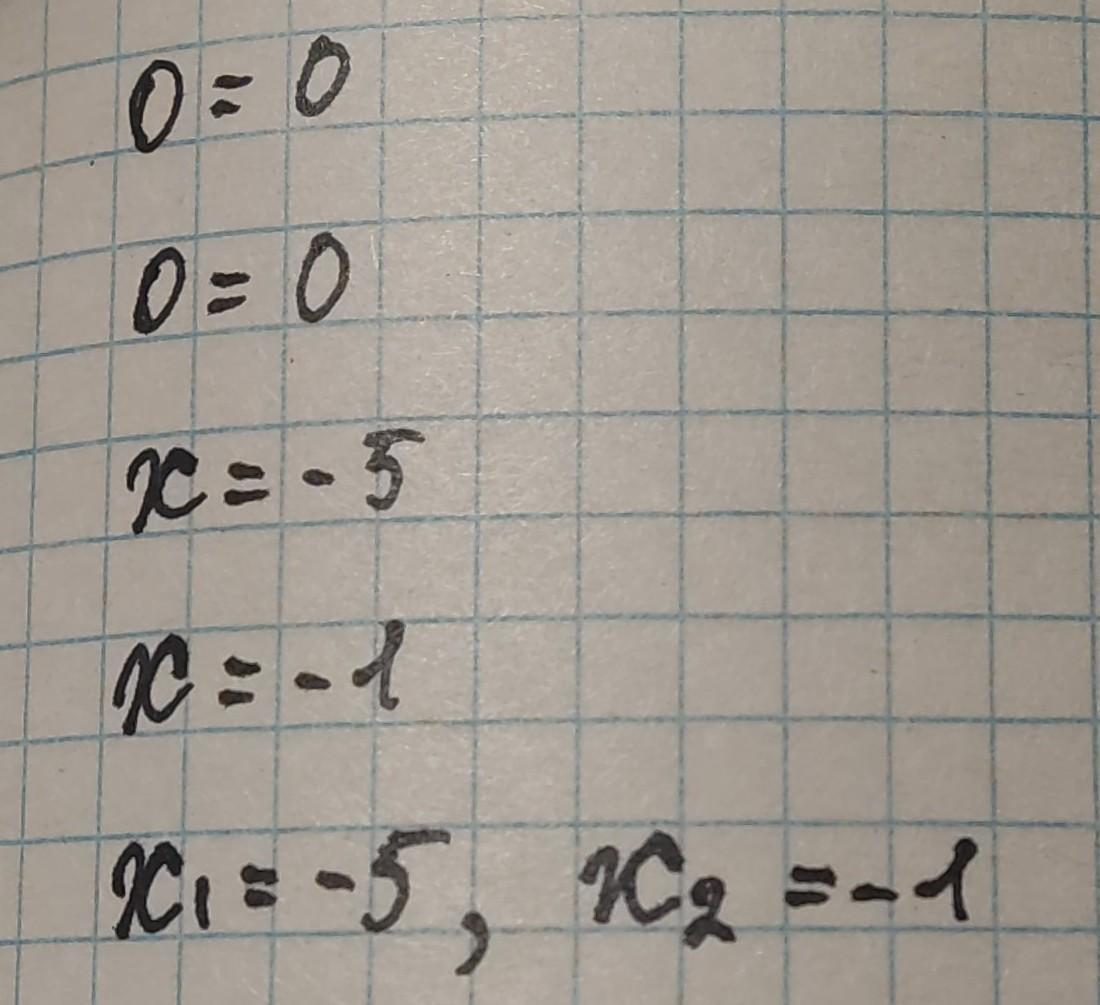 0 = 0
0 = 0
x = -5
x = -1
x₁ = -5, x₂ = -1